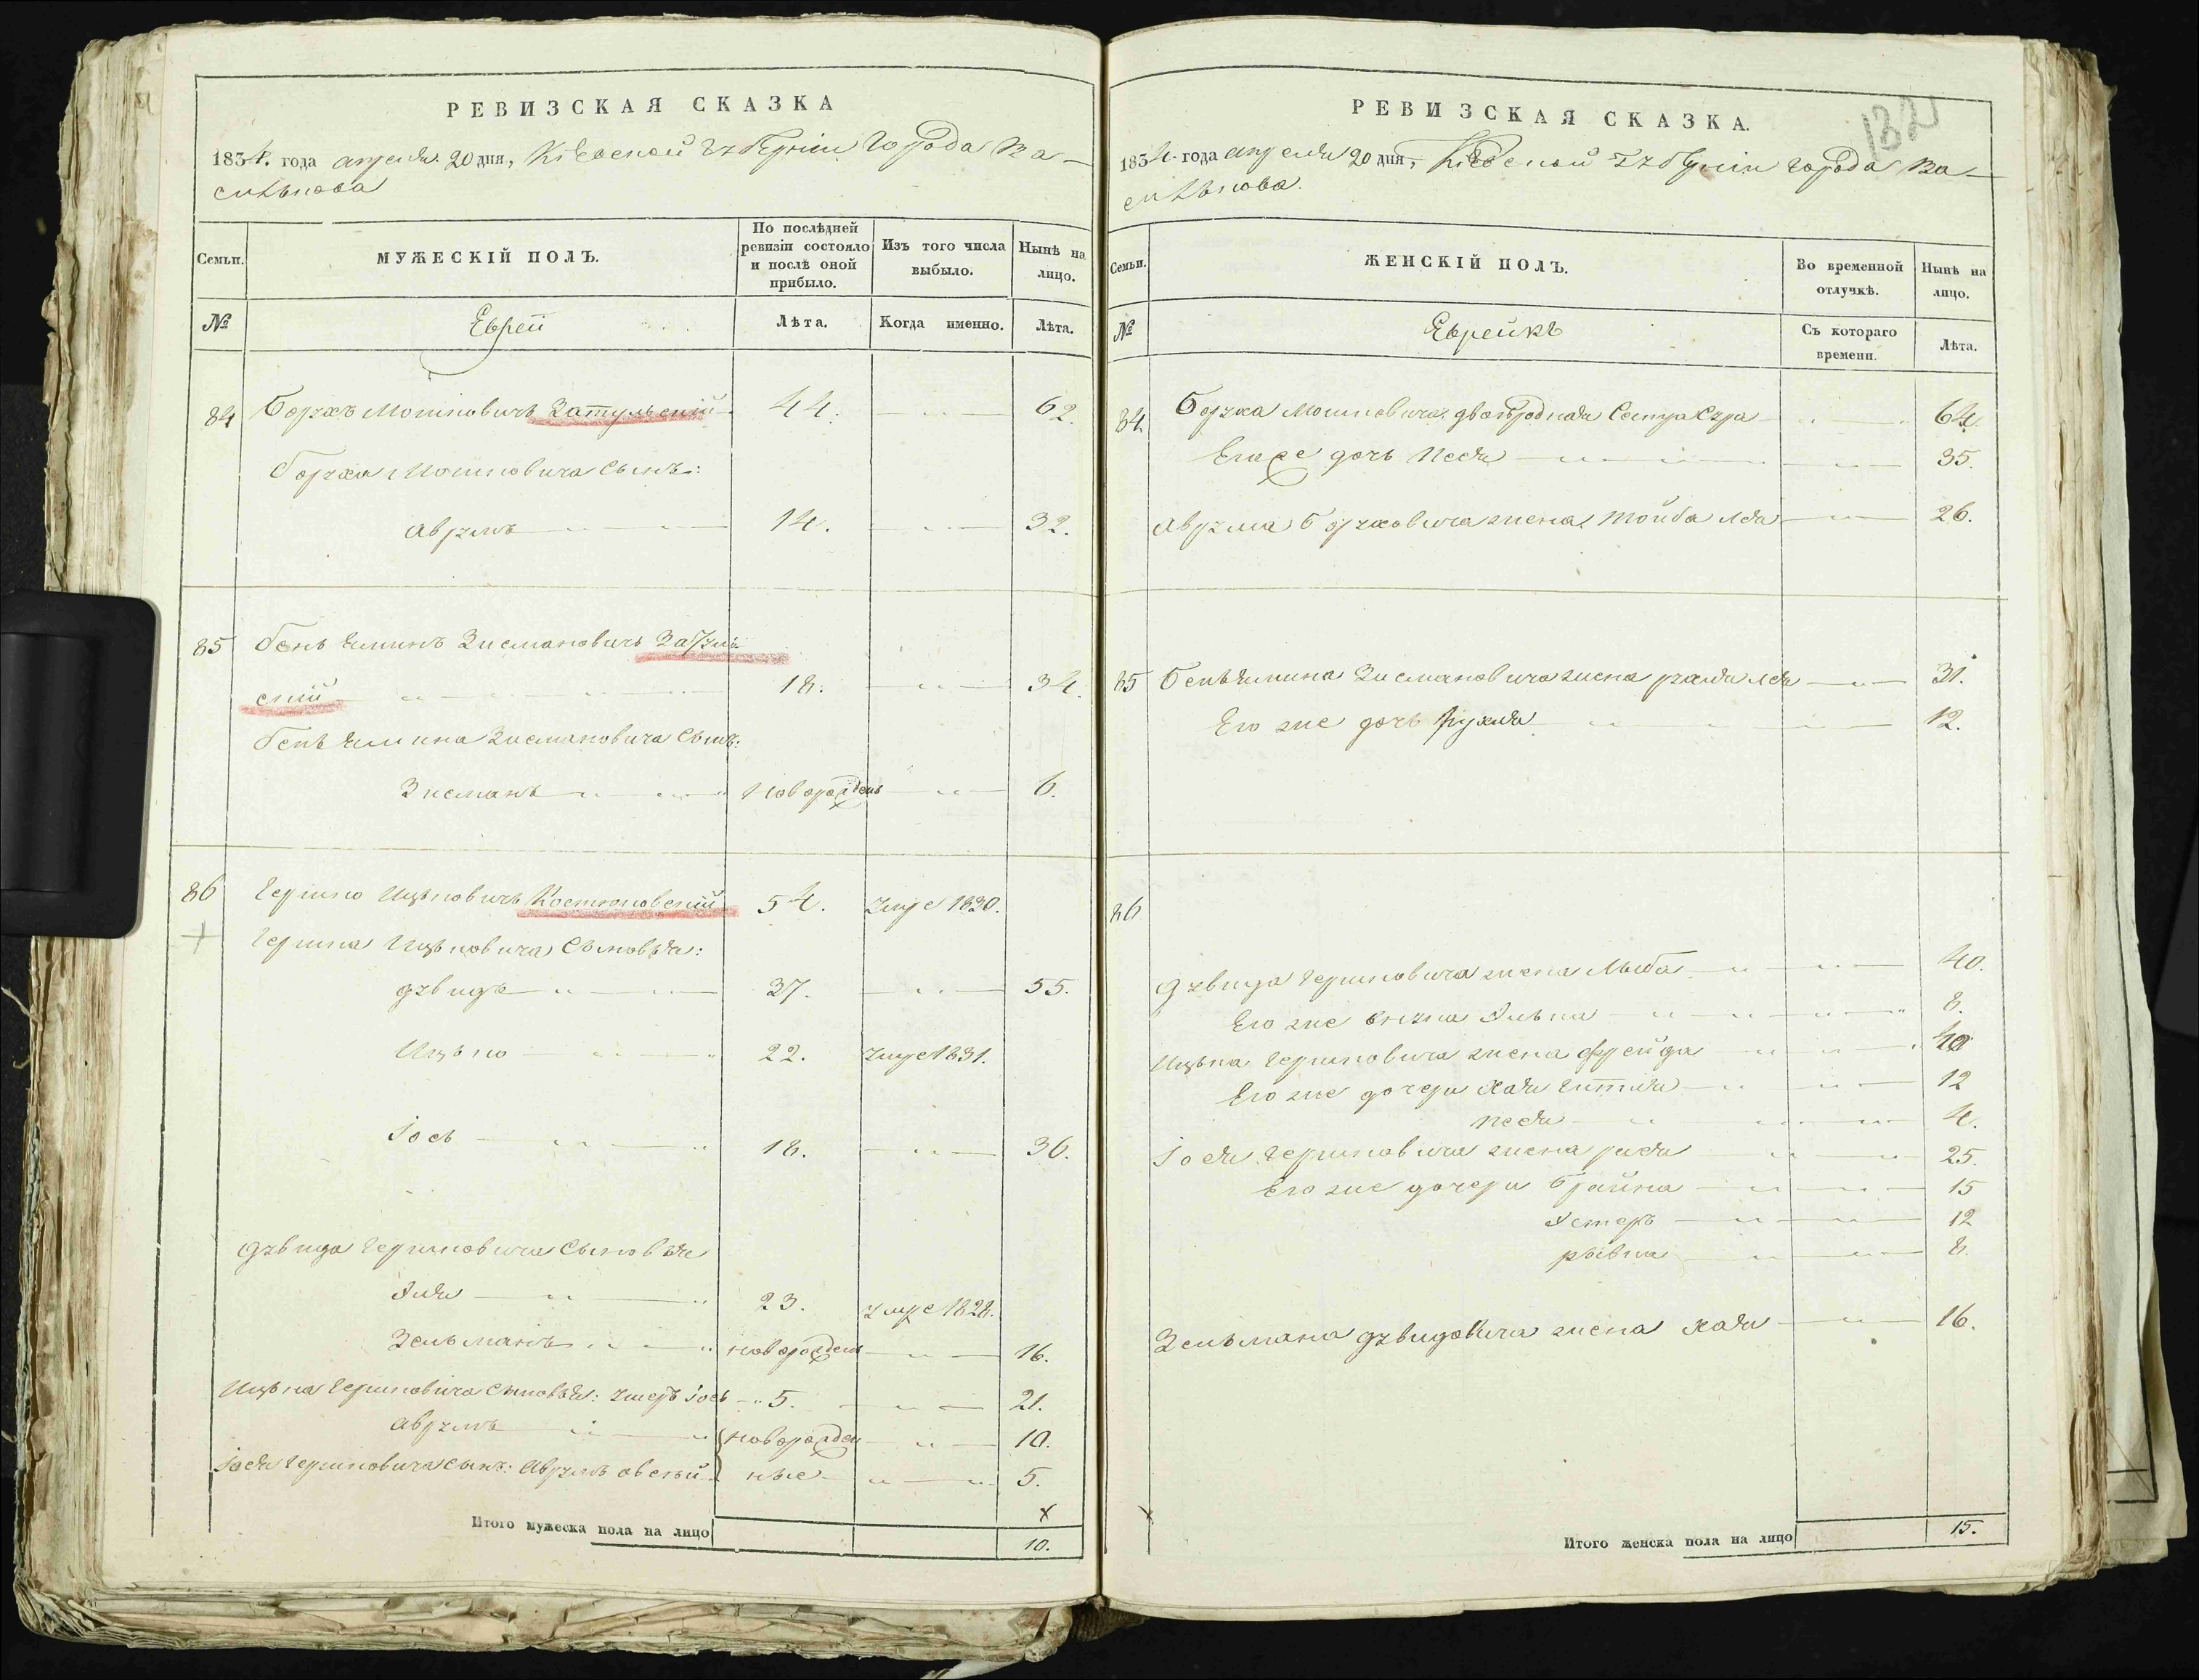 РЕВИЗСКАЯ СКАЗКА
1834. года апреля 20 дня, Кіевской Губерніи Города Ва-
силькова
Семьи.
МУЖЕСКІЙ ПОЛЪ.
По послѣдней ревизіи состояло и послѣ оной прибыло.
Изъ того числа выбыло.
Нынѣ на лицо.
№
Евреи
Лѣта.
Когда именно.
Лѣта.
84 Борухъ Мошковичъ Затульскій 44. 62.
Боруха Мошковича Сынъ:
Аврумъ 14. 32.
85 Беньяминъ Зисмановичъ
скій 18. 34.
Беньямина Зисмановича Сынъ:
Зисманъ Новорожденъ 6.
86 Гершко Ицьковичъ Костюковскій 54. умре 1830.
Гершка Ицьковича Сыновья:
Дувидъ 37. 55.
Ицько 22. умре 1831.
Іось 18. 36.
Дувида Гершковича Сыновья
Эля 23. умре 1828.
Зельманъ новорожден 16.
Ицька Гершковича Сыновья: Іось 5. 21.
Аврумъ новорожден 10.
Іося Гершковича Сынъ: Аврумъ ные 5.
Итого мужеска пола на лицо 10.
РЕВИЗСКАЯ СКАЗКА.
132
1834. года апреля 20 дня, Кіевской Губерніи города Ва-
силькова.
Семьи.
ЖЕНСКІЙ ПОЛЪ.
Во временной отлучкѣ.
Нынѣ на лицо.
№
Еврейкъ
Съ котораго времени.
Лѣта.
84 Боруха Мошковича двоюродная Сестра Сура 64.
Ея же дочь Песя 35.
Аврума Боруховича жена Тойба Лея 26.
85 Беньямина Зисмановича жена Лея 31.
Его же дочь Рухля 12.
86
Дувида Гершковича жена Либа 40.
Его же внука Элька 8.
Ицька Гершковича жена Фрейда 40
Его же дочери Хая Гитля 12
Песя 4.
Іося Гершковича жена Рися 25.
Его же дочери Брайна 15
Эстеръ 12
Рывка 8.
Зельмана Дувидовича жена Хая 16.
Итого женска пола на лицо 15.